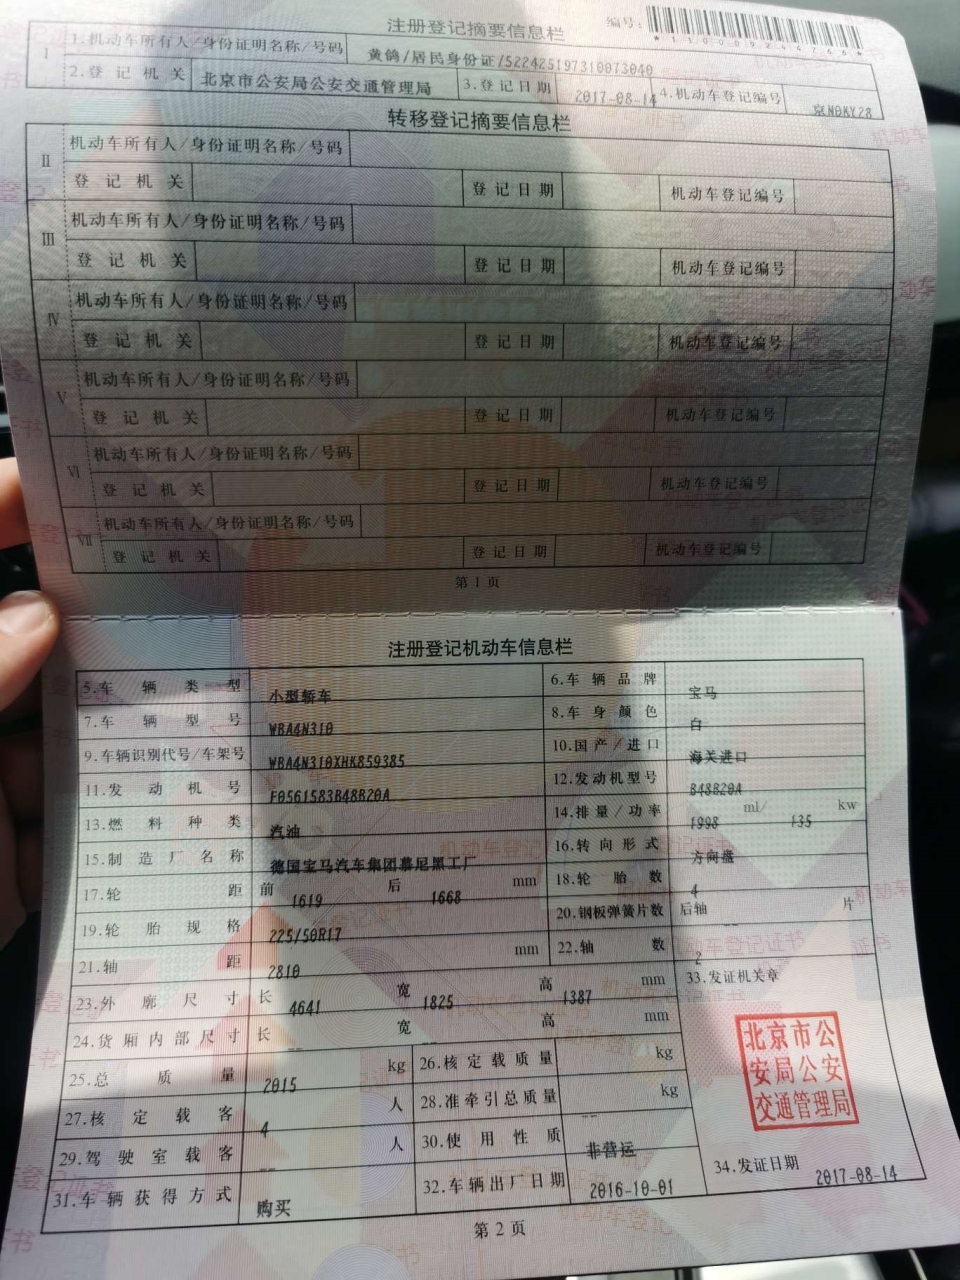 注册登记摘要信息栏
编号:
*110009246746*
1
1.机动车所有人/身份证明名称/号码 黄鸽/居民身份证/522425197310073040
2.登记机关 北京市公安局公安交通管理局 3.登记日期 2017-08-14 4.机动车登记编号 京N0KY28
转移登记摘要信息栏
Ⅱ 机动车所有人/身份证明名称/号码
登记机关 登记日期 机动车登记编号
Ⅲ 机动车所有人/身份证明名称/号码
登记机关 登记日期 机动车登记编号
Ⅳ 机动车所有人/身份证明名称/号码
登记机关 登记日期 机动车登记编号
Ⅴ 机动车所有人/身份证明名称/号码
登记机关 登记日期 机动车登记编号
Ⅵ 机动车所有人/身份证明名称/号码
登记机关 登记日期 机动车登记编号
Ⅶ 机动车所有人/身份证明名称/号码
登记机关 登记日期 机动车登记编号
第1页
注册登记机动车信息栏
5.车辆类型 小型轿车 6.车辆品牌 宝马
7.车辆型号 WBA4N310 8.车身颜色 白
9.车辆识别代号/车架号 WBA4N310XHK859385 10.国产/进口 海关进口
11.发动机号 F0561583B48B20A 12.发动机型号 B48B20A
13.燃料种类 汽油 14.排量/功率 1998 ml/ 135 kw
15.制造厂名称 德国宝马汽车集团慕尼黑工厂 16.转向形式 方向盘
17.轮距 前 1619 后 1668 mm 18.轮胎数 4
19.轮胎规格 225/50R17 20.钢板弹簧片数 后轴 -- 片
21.轴距 2810 mm 22.轴数 2
23.外廓尺寸 长 4641 宽 1825 高 1387 mm 33.发证机关章
24.货厢内部尺寸 长 -- 宽 -- 高 -- mm
25.总质量 2015 kg 26.核定载质量 -- kg
27.核定载客 4 人 28.准牵引总质量 -- kg
29.驾驶室载客 -- 人 30.使用性质 非营运
31.车辆获得方式 购买 32.车辆出厂日期 2016-10-01 34.发证日期 2017-08-14
北京市公
安局公安
交通管理局
第2页